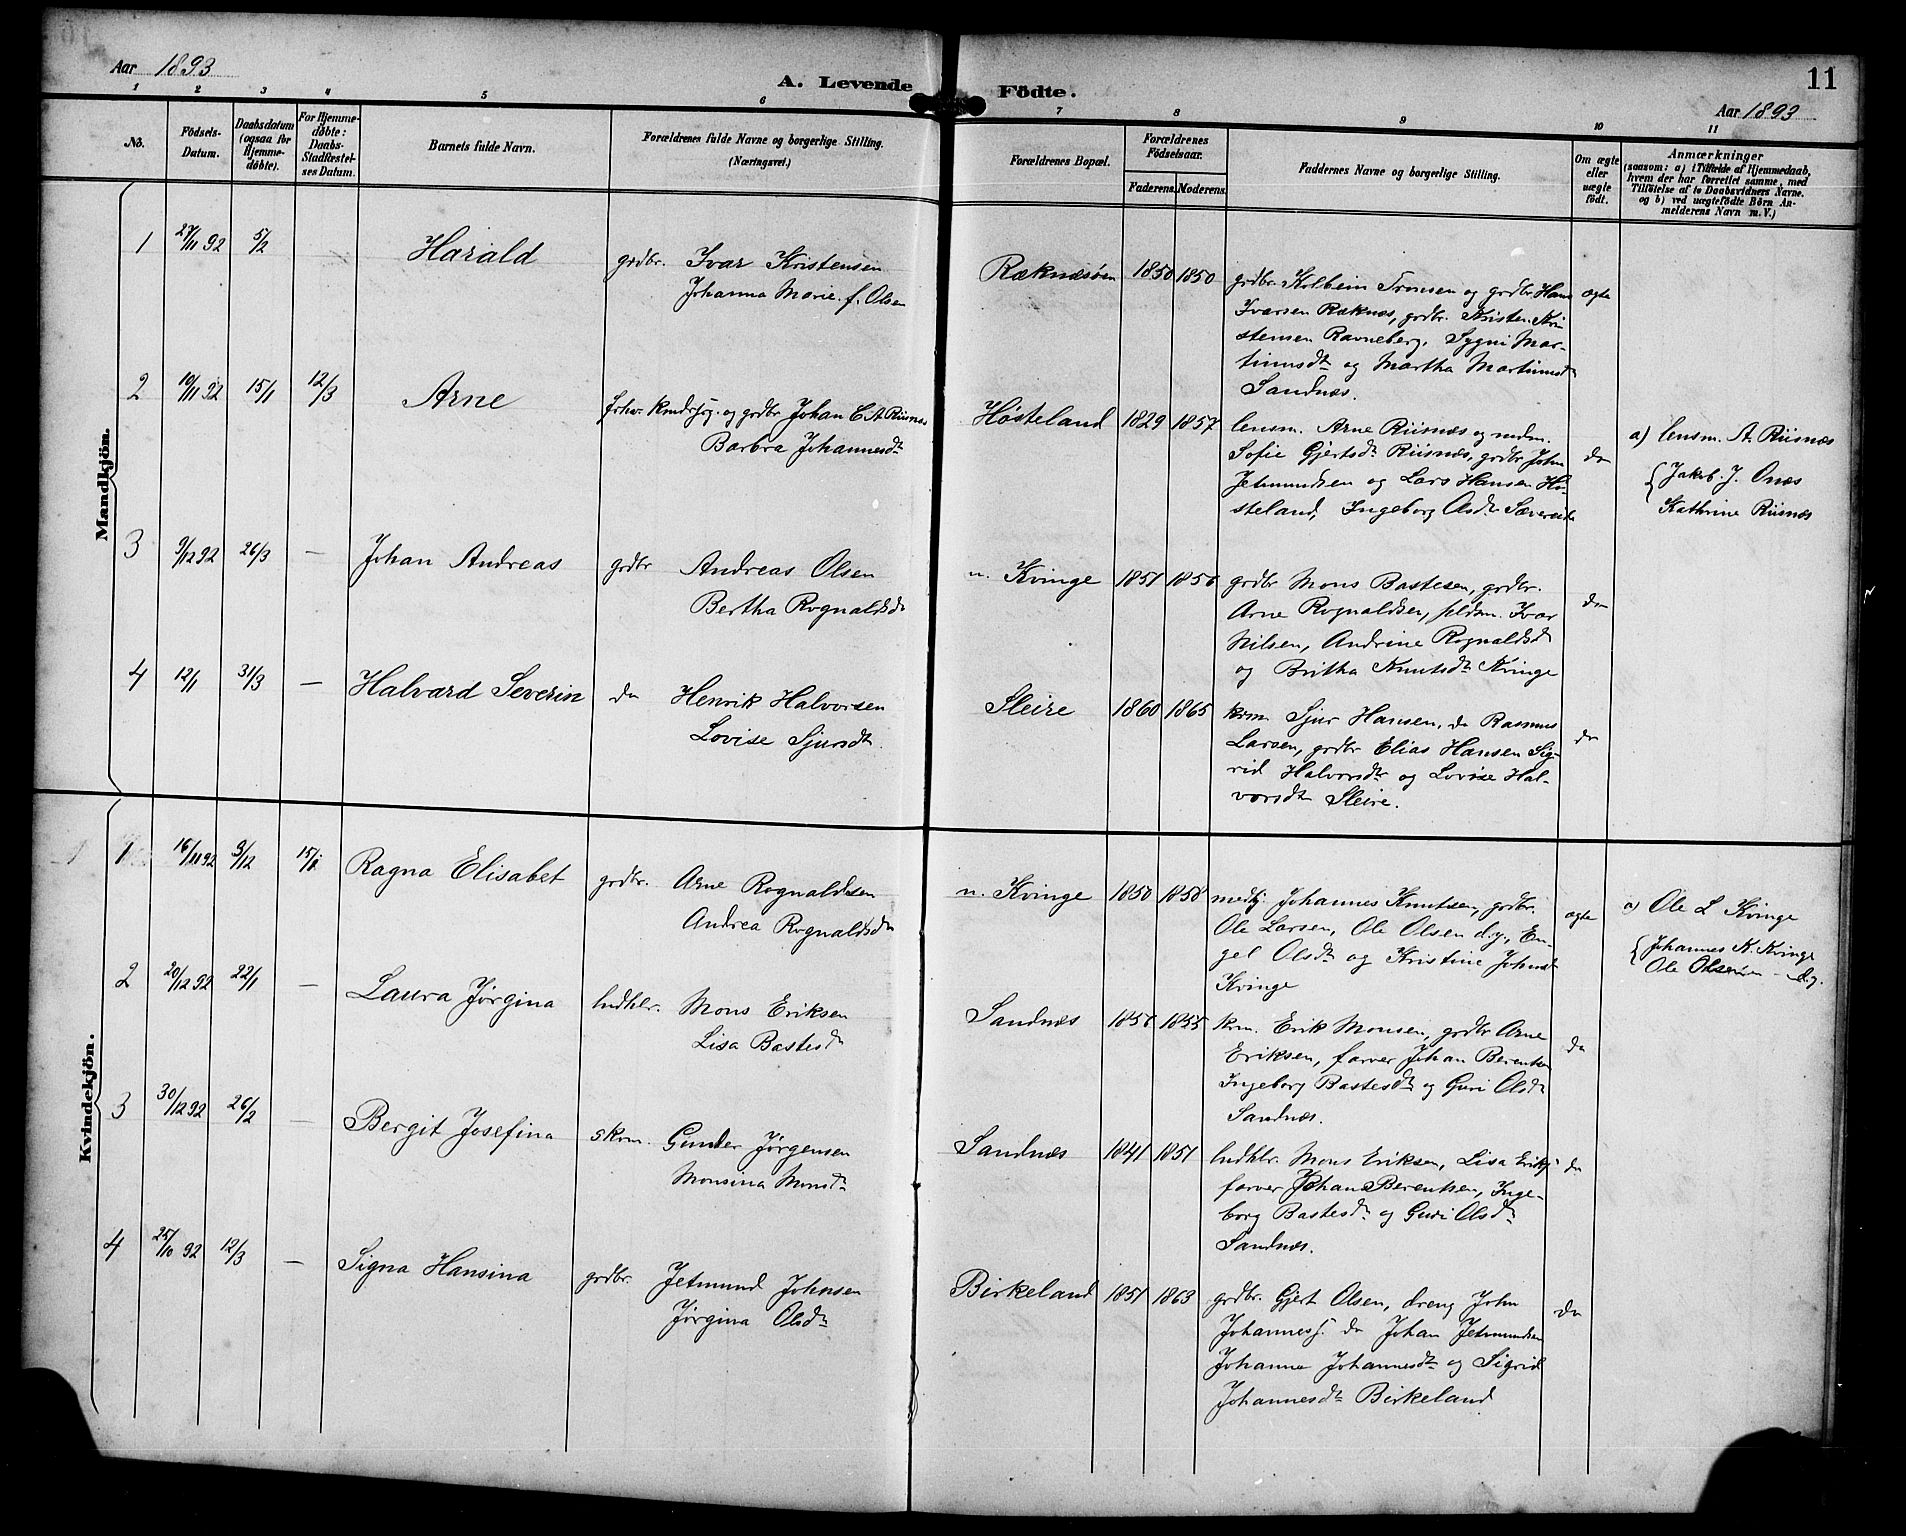 Aar 1893
A. Levende Födte.
11
Aar 1893
1 2 3 4 5 6 7 8 9 10 11
No.
Födsels-Datum.
Daabsdatum (ogsaa for Hjemmedøbte).
For Hjemmedøbte: Daabs-Stadfæstelses Datum.
Barnets fulde Navn.
Forældrenes fulde Navne og borgerlige Stilling. (Næringsvei.)
Forældrenes Bopæl.
Forældrenes Fødselsaar.
Faderens. Moderens.
Faddernes Navne og borgerlige Stilling.
Om ægte eller uægte født.
Anmærkninger
(saasom: a) i Tilfælde af Hjemmedaab,
hvem der har forrettet samme, med
Tilföielse af to Daabsvidners Navne.
og b) ved uægtefödte Börn An-
melderens Navn m. V.)
Mandkjön.
1 27/11 92 5/2 Harald grdbr. Ivar Kristensen
Johanna Marie f. Olsen
Ræknæsøen 1850 1850
grdbr. Kolbein Tronsen og grdbr. Hans
Ivarsen Ræknæs, grdbr. Kristen Kri
stensen Ravneberg, Sygni Mar-
tinusdt og Martha Martinusdt
Sandnæs.
ægte
2 10/11 92 15/1 12/3 Arne
og grdbr. Johan C. A. Riisnæs
Barbra Johannesdt
Høsteland 1829 1857
lensm. Arne Riisnæs og
Sofie Gjertsdt Riisnæs, grdbr. John
Jetmundsen og Lars Hansen Hø-
steland, Ingeborg Olsdt Sævereide
do
a) lensm. A. Riisnæs
Jakob J. Onæs
Kathrine Riisnæs
3 9/12 92 26/3 — Johan Andreas grdbr Andreas Olsen
Bertha Rognaldsdt
n. Kvinge 1851 1856
grdbr Mons Bastesen, grdbr.
Arne Rognaldsen, seldsm. Ivar
Nilsen, Andrine Rognaldsdt
og Britha Knutsdt Kvinge
do
4 12/1 31/3 — Halvard Severin do Henrik Halvorsen
Lovise Sjursdt
Sleire 1860 1865
krm Sjur Hansen, do Rasmus
Larsen, grdbr Elias Hansen Sig-
rid Halvorsdt og Lovise Hal-
vorsdt Sleire.
do
Kvindekjön.
1 16/11 92 9/12 15/1 Ragna Elisabet grdbr. Arne Rognaldsen
Andrea Rognaldsdt
n. Kvinge 1850 1858
medhj. Johannes Knutsen, grdbr.
Ole Larsen, Ole Olsen d.y., En-
gel Olsdt og Kristine Johnsdt
Kvinge
ægte
a) Ole L Kvinge
Johannes K. Kvinge
Ole Olsen — d.y.
2 20/12 92 22/1 — Laura Jørgina lndhlr. Mons Eriksen
Lisa Bastesdt
Sandnæs 1856 1855
krm. Erik Monsen, grdbr Arne
Eriksen, farver Johan Berentsen
Ingeborg Bastesdt og Guri Olsdt
Sandnæs.
do
3 30/12 92 26/2 — Bergit Josefina skrm. Gunder Jørgensen
Monsina Monsdt
Sandnæs 1841 1851
lndhlr. Mons Eriksen, Lisa Eriks
farver Johan Berentsen, Inge-
borg Bastesdt og Guri Olsdt
Sandnæs.
do
4 25/10 92 12/3 — Signa Hansina grdbr. Jetmund Johnsen
Jørgina Olsdt
Birkeland 1851 1863
grdbr. Gjert Olsen, dreng John
Johanness. do Johan Jetmundsen
Johanne Johannesdt og Sigrid
Johannesdt Birkeland
do